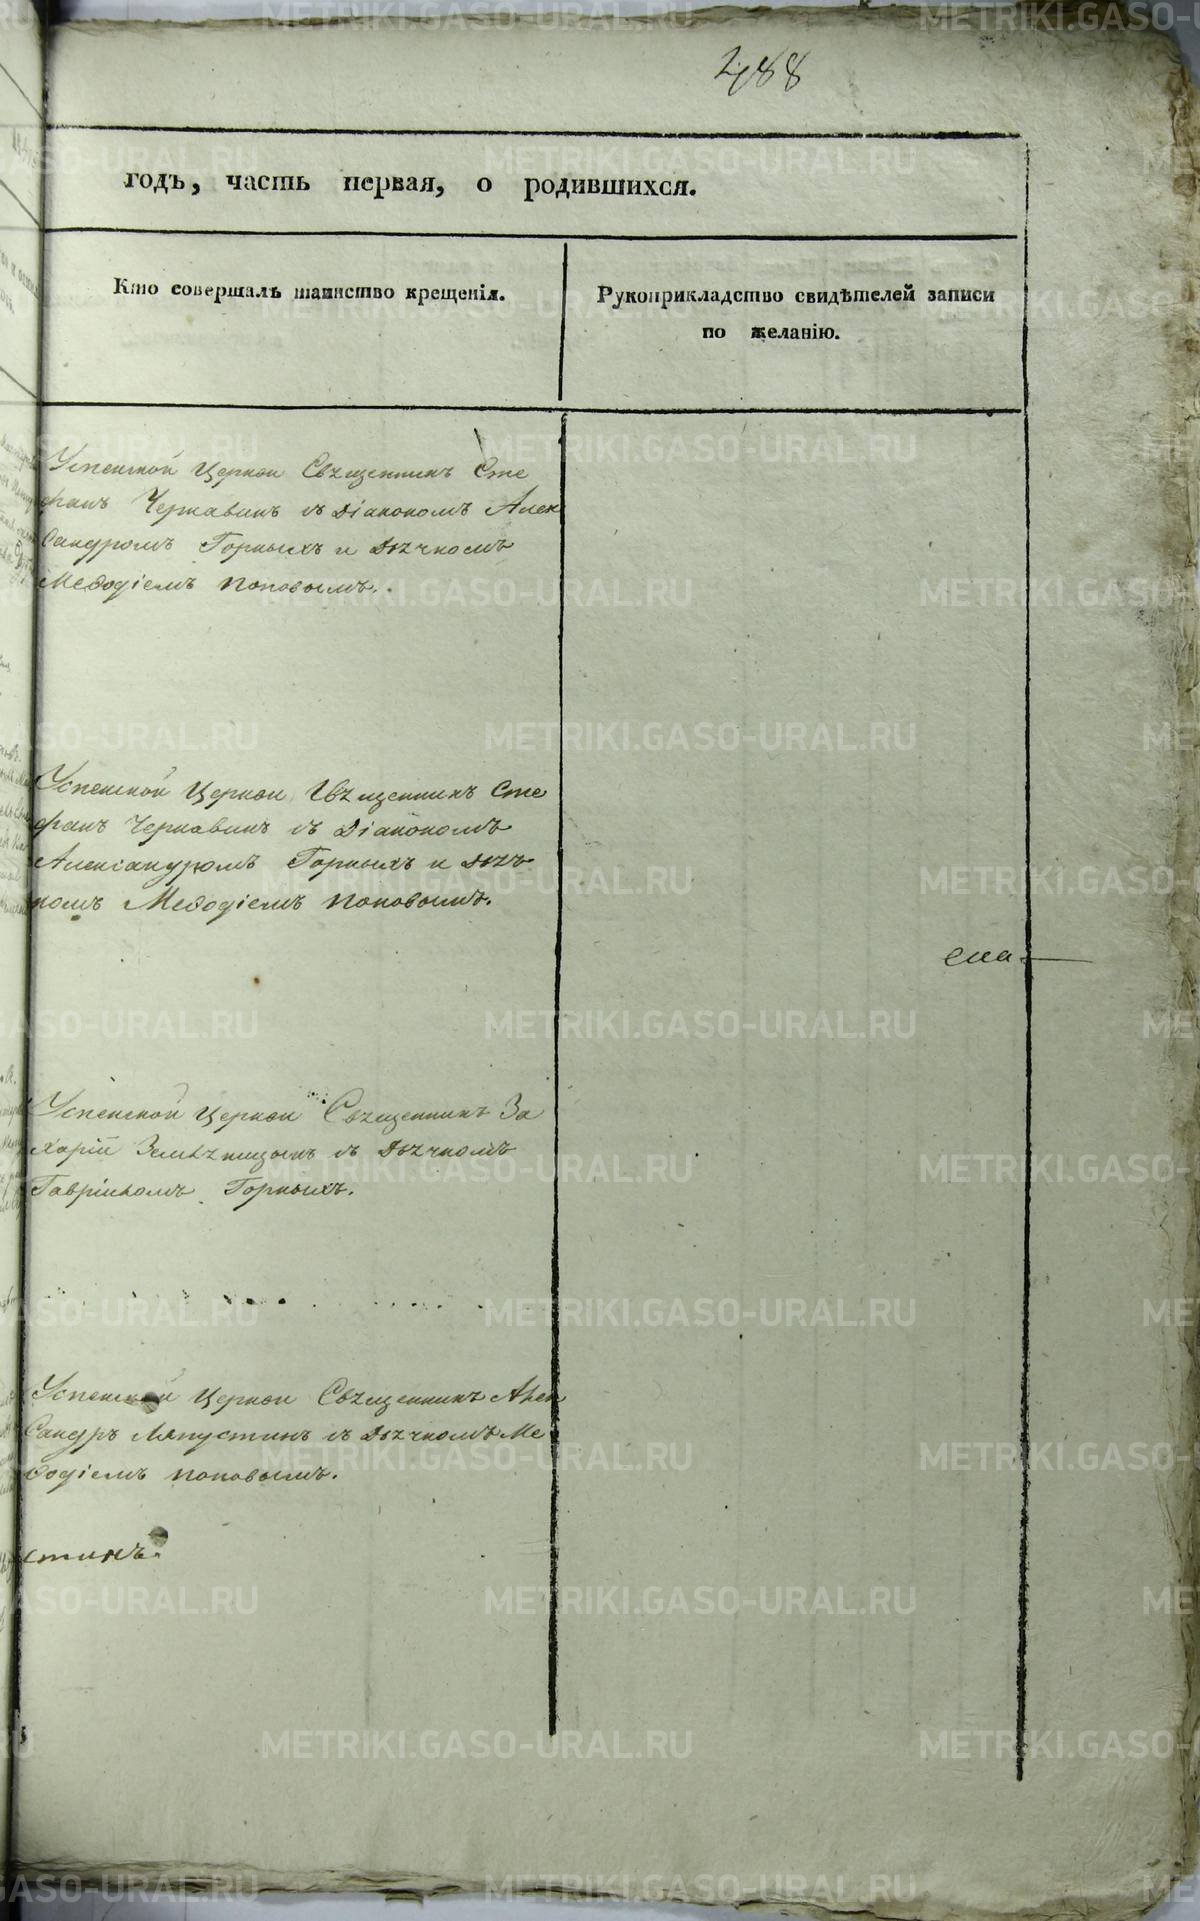 488
годъ, часть первая, о родившихся.
Кто совершалъ таинство крещенія.
Рукоприкладство свидѣтелей записи
по желанію.
Успенской Церкви Свѣщенникъ Сте
фанъ Чернавинъ съ Діакономъ Алек
сандромъ Горныхъ и Дьячкомъ
Меѳодіемъ Поповымъ.
Успенской Церкви Свѣщенникъ Сте
фанъ Чернавинъ съ Діакономъ
Александромъ Горныхъ и Дьяч
комъ Меѳодіемъ Поповымъ.
Успенской Церкви Свѣщенникъ За
харій съ Дьячкомъ
Горныхъ.
Успенской Церкви Свѣщенникъ Алек
сандръ Ляпустинъ съ Дьячкомъ Ме
ѳодіемъ Поповымъ.
стинъ.
METRIKI.GASO-URAL.RU